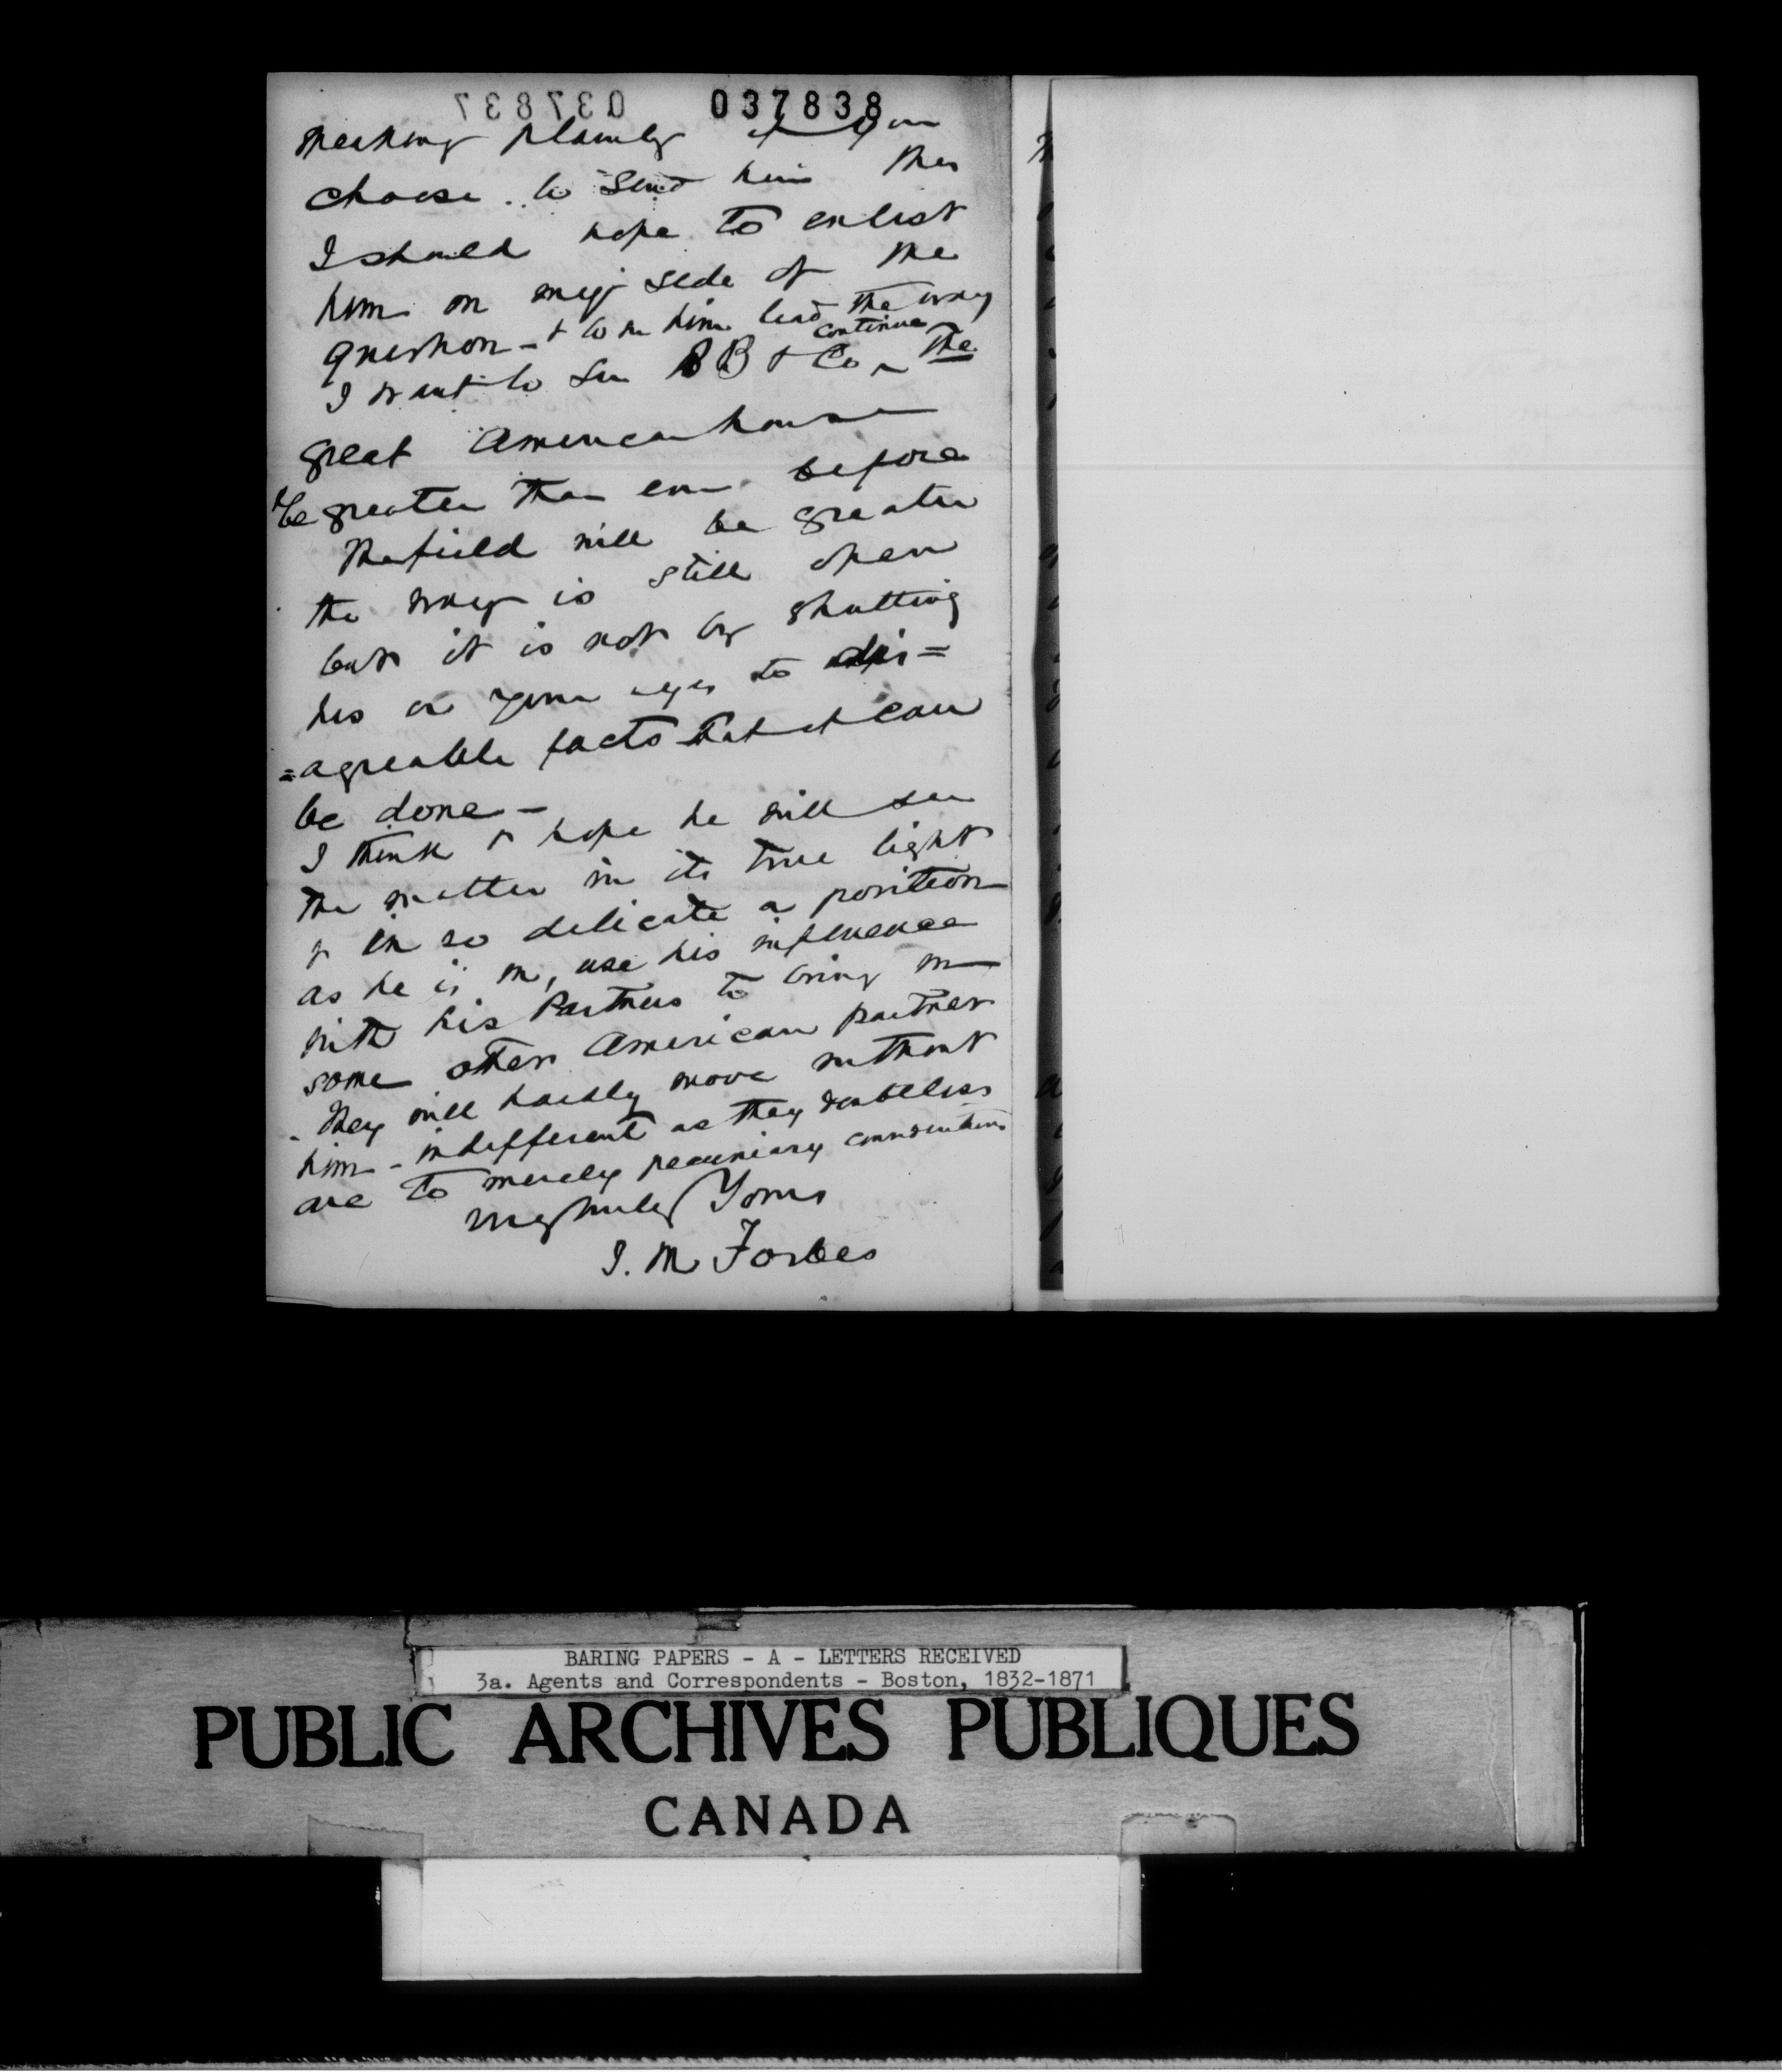 037837 037838
speaking plainly if you
choose to send him this
I should hope to enlist
him on my side of the
question - & to see him lead the way
I want to see BB & Co continue the
great American house
& be greater than ever before
The field will be greater
the way is still open
but it is not by shutting
his or your eyes to dis=
=agreable facts that it can
be done -
I think & hope he will see
the matter in its true light
& in so delicate a position
as he is in, use his influence
with his Partners to bring in
some other American partner
They will hardly move without
him - indifferent as they doubtless
are to merely pecuniary considerations
Very truly Yours
J. M Forbes
BARING PAPERS - A - LETTERS RECEIVED
3a. Agents and Correspondents - Boston, 1832-1871
PUBLIC ARCHIVES PUBLIQUES
CANADA